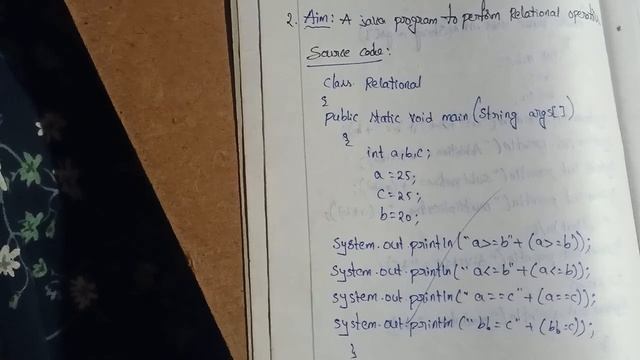 2. Aim: A java program to perform Relational
Source code:
class Relational
{
public static void main (String args[])
{
int a,b,c;
a=25;
c=25;
b=20;
System.out println("a>=b"+(a>=b));
System.out println("a<=b"+(a<=b));
System.out println("a==c"+(a==c));
System.out println("bb=c"+(bb=c));
}